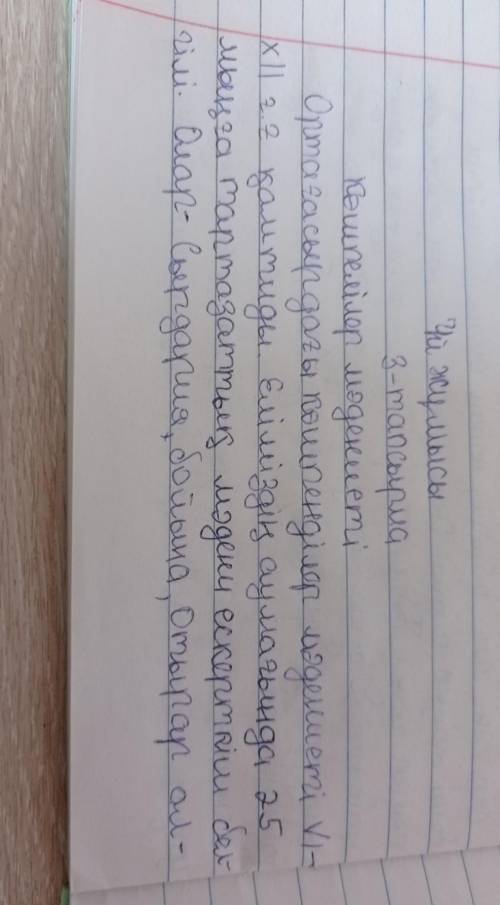 Үй жұмысы
3-тапсырма
Көшпелілер мәдениеті
Ортағасырдағы көшпенділер мәдениеті VI-
XII ғ.ғ қамтиды. Еліміздің аумағында 25
мыңға тарта заттық мәдени ескерткіш бел-
гілі. Олар- Сырдария, бойына, Отырар ал-